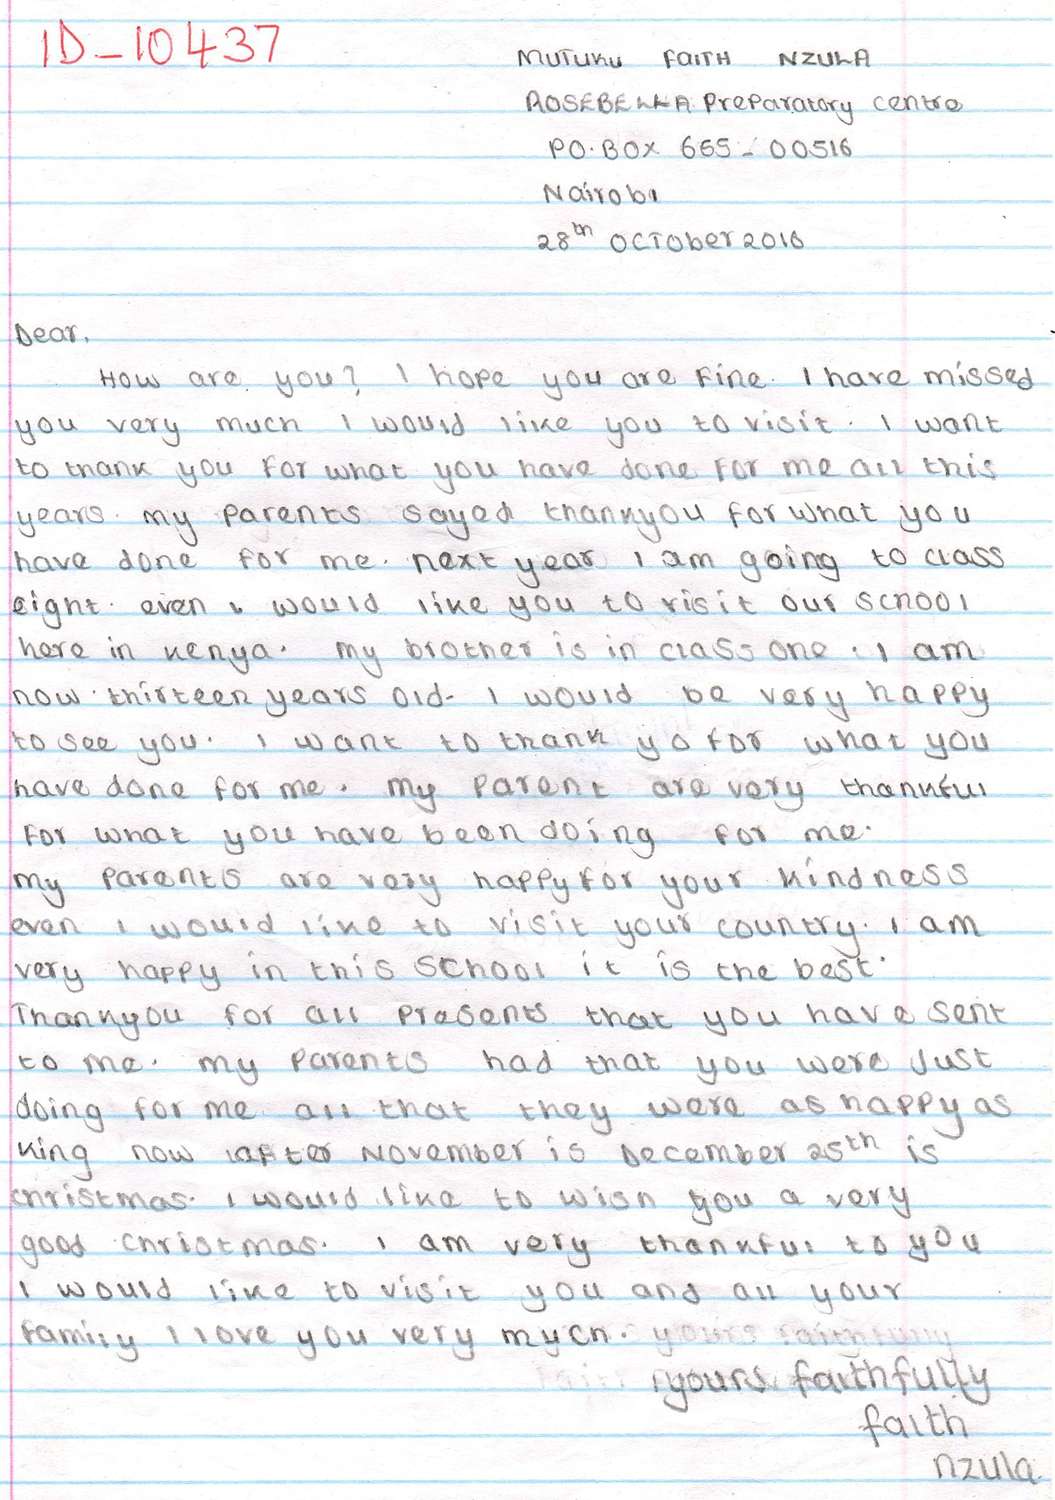 ID-10437
MUTUKU FAITH NZULA
ROSEBELLA Preparatory centre
P.O.BOX 665-00516
Nairobi
28th OCTober 2016
Dear,
How are you? I hope you are Fine. I have missed
you very much I would like you to visit. I want
to thank you For what you have done For me all this
years. my parents sayed thankyou for what you
have done for me. next year I am going to class
eight. even I would like you to visit our school
here in kenya. my brother is in class one. I am
now thirteen years old. I would be very happy
to see you. I want to thank yo for what you
have done for me. my parent are very thankful
For what you have been doing for me.
my parents are very happy for your kindness
even I would like to visit your country. I am
very happy in this school it is the best.
Thankyou for all presents that you have sent
to me. my parents had that you were Just
doing for me all that they were as happy as
king now after November is December 25th is
christmas. I would like to wish you a very
good christmas. I am very thankful to you
I would like to visit you and all your
family I love you very mych. yours faithfully
yours faithfully
faith
nzula.